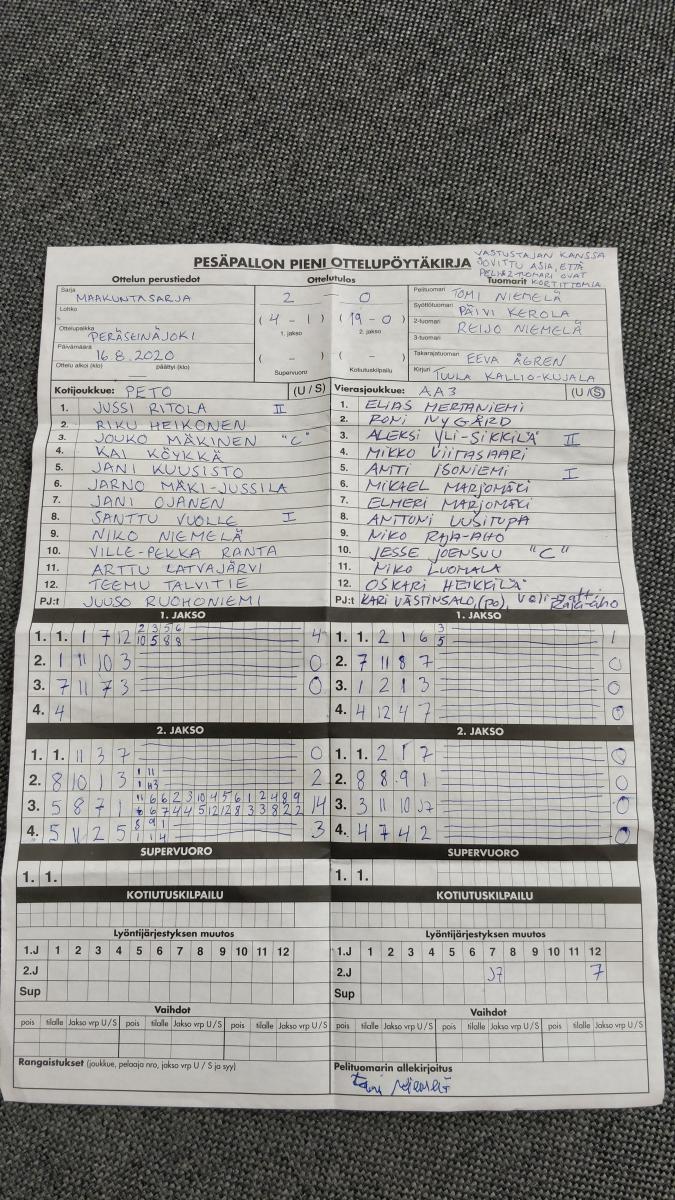 PESÄPALLON PIENI OTTELUPÖYTÄKIRJA
VASTUSTAJAN KANSSA
SOVITTU ASIA, ETTÄ
PELI&2-TUOMARI OVAT
KORTITTOMIA
Ottelun perustiedot Ottelutulos Tuomarit
Sarja
MAAKUNTASARJA
Lohko
Ottelupaikka
PERÄSEINÄJOKI
Päivämäärä
16.8.2020
Ottelu alkoi (klo) päättyi (klo)
2 - 0
(4 - 1) (19 - 0)
1. jakso 2. jakso
( - ) ( - )
Supervuoro Kotiutuskilpailu
Pelituomari TOMI NIEMELÄ
Syöttötuomari PÄIVI KEROLA
2-tuomari REIJO NIEMELÄ
3-tuomari
Takarajatuomari EEVA ÅGREN
Kirjuri TUULA KALLIO-KUJALA
Kotijoukkue: PETO (U / S)
1. JUSSI RITOLA II
2. RIKU HEIKONEN
3. JOUKO MÄKINEN "C"
4. KAI KÖYKKÄ
5. JANI KUUSISTO
6. JARNO MÄKI-JUSSILA
7. JANI OJANEN
8. SANTTU VUOLLE I
9. NIKO NIEMELÄ
10. VILLE-PEKKA RANTA
11. ARTTU LATVAJÄRVI
12. TEEMU TALVITIE
PJ:t JUUSO RUOHONIEMI
Vierasjoukkue: AA3 (U / S)
1. ELIAS HERTANIEMI
2. RONI NYGÅRD
3. ALEKSI YLI-SIKKILÄ II
4. MIKKO VIITASAARI
5. ANTTI ISONIEMI I
6. MIKAEL MARJOMÄKI
7. ELMERI MARJOMÄKI
8. ANTTONI UUSITUPA
9. NIKO RAJA-AHO
10. JESSE JOENSUU "C"
11. NIKO LUOMALA
12. OSKARI HEIKKILÄ
PJ:t KARI VÄSTINSALO, (PO), Veli-Matti Raja-aho
1. JAKSO
1. 1. 1 7 12 2 3 5 6 4
10 5 8 8
2. 1 11 10 3 0
3. 7 11 7 3 0
4. 4
1. JAKSO
1. 1. 2 1 6 3 1
5
2. 7 11 8 7 0
3. 1 2 1 3 0
4. 4 12 4 7 0
2. JAKSO
1. 1. 11 3 7 0
2. 8 10 1 3 1 11 2
3. 5 8 7 1 11 6 6 2 3 10 4 5 6 1 2 4 8 9 14
6 7 4 4 5 12 12 8 3 3 8 2 2
4. 5 11 2 5 8 9 1 3
1 1 4
2. JAKSO
1. 1. 2 1 7 0
2. 8 8 9 1 0
3. 3 11 10 J7 0
4. 4 7 4 2 0
SUPERVUORO
1. 1.
SUPERVUORO
1. 1.
KOTIUTUSKILPAILU
KOTIUTUSKILPAILU
Lyöntijärjestyksen muutos
1.J 1 2 3 4 5 6 7 8 9 10 11 12
2.J
Sup
Lyöntijärjestyksen muutos
1.J 1 2 3 4 5 6 7 8 9 10 11 12
2.J J7 7
Sup
Vaihdot
pois tilalle Jakso vrp U / S pois tilalle Jakso vrp U / S pois tilalle Jakso vrp U / S
Vaihdot
pois tilalle Jakso vrp U / S pois tilalle Jakso vrp U / S pois tilalle Jakso vrp U / S
Rangaistukset (joukkue, pelaaja nro, jakso vrp U / S ja syy)
Pelituomarin allekirjoitus
Tomi Niemelä